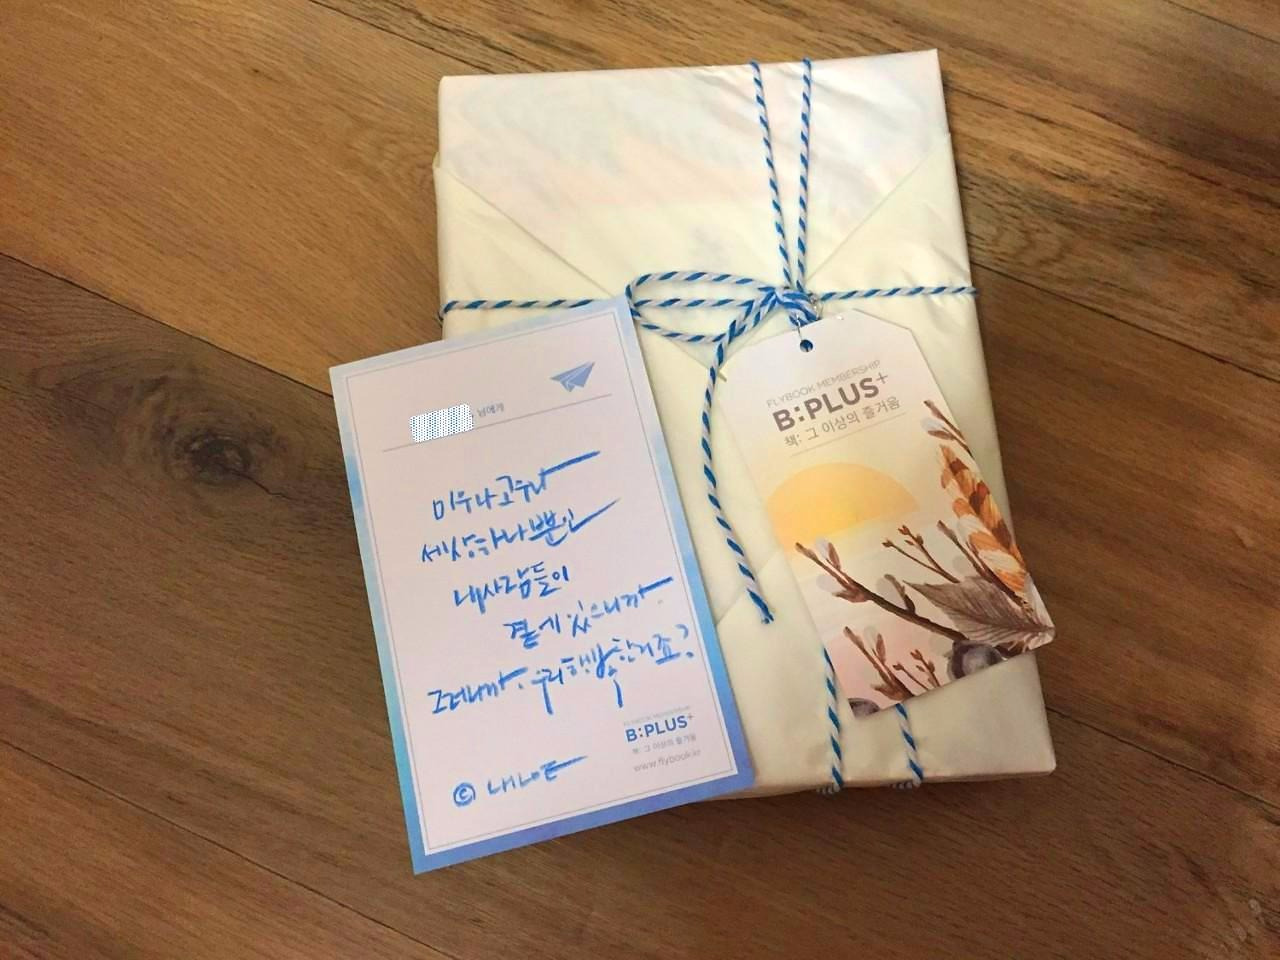 님에게
미우나고우나
세상하나뿐인
내사람들이
곁에있으니까
그러니까 우리행복한거죠?
FLYBOOK MEMBERSHIP
B:PLUS+
책: 그 이상의 즐거움
www.flybook.kr
©
FLYBOOK MEMBERSHIP
B:PLUS+
책: 그 이상의 즐거움